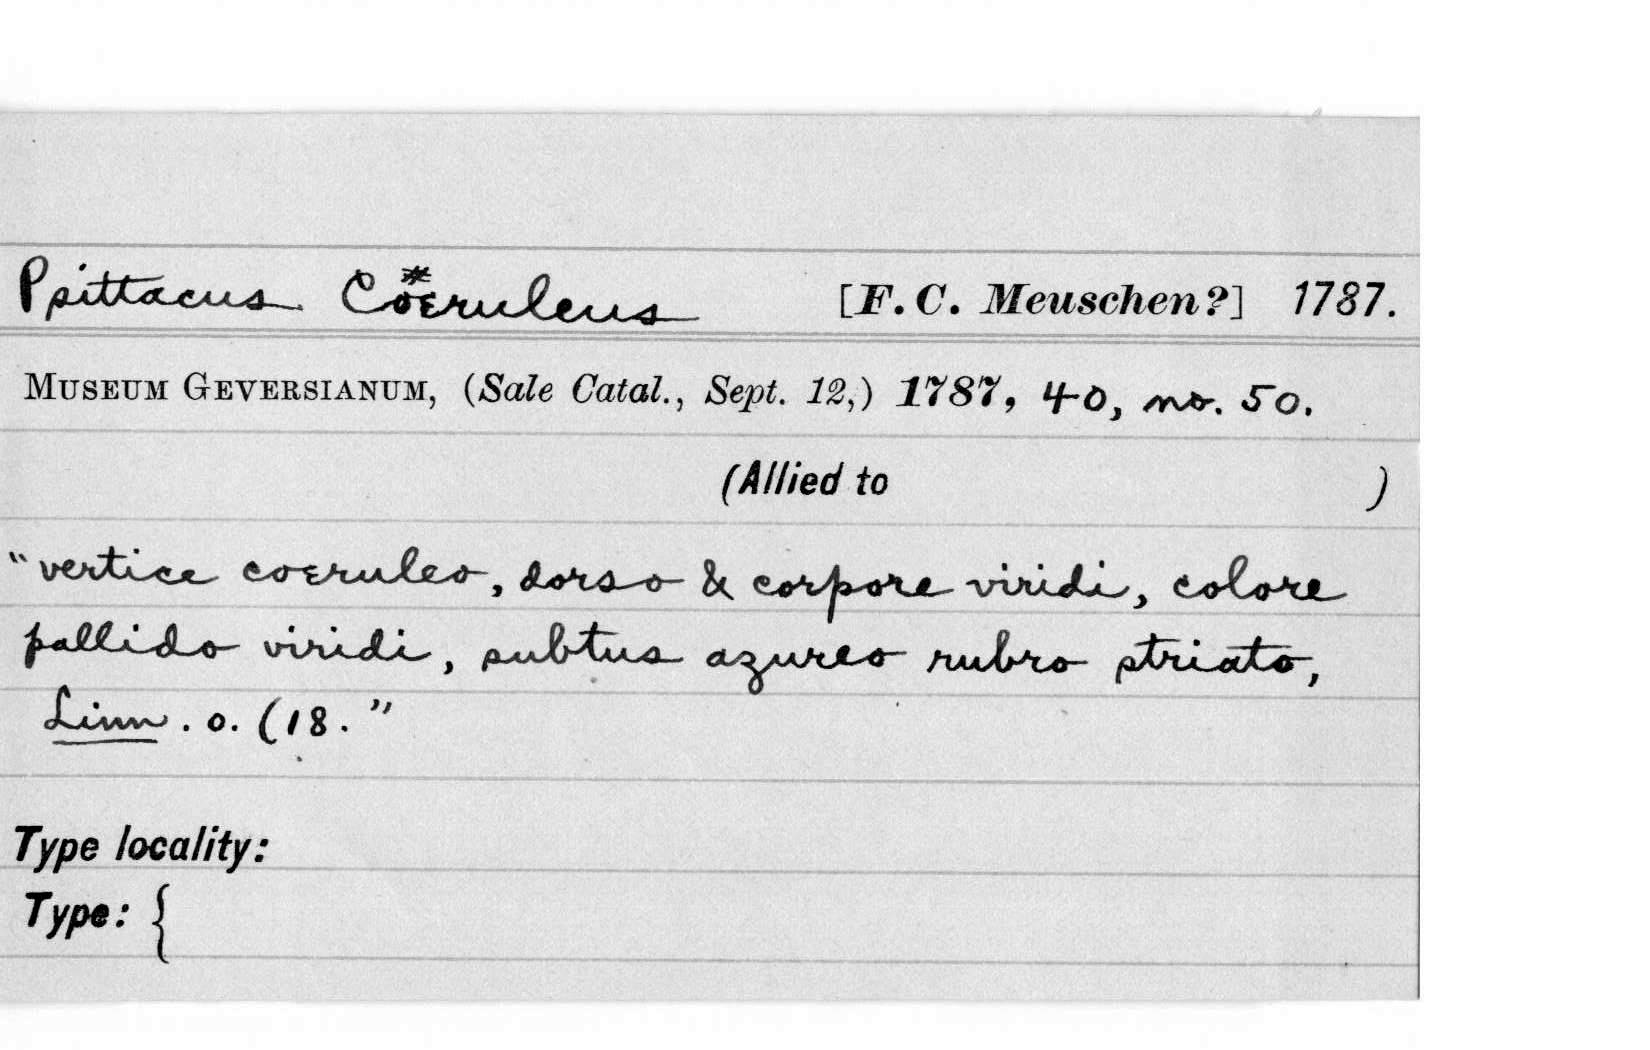 Psittacus Coeruleus [F. C. Meuschen?] 1787.
MUSEUM GEVERSIANUM, (Sale Catal., Sept. 12,) 1787, 40, no. 50.
(Allied to )
"vertice coeruleo, dorso & corpore viridi, colore
pallido viridi, subtus azureo rubro striato,
Linn. o. (18."
Type locality:
Type: {